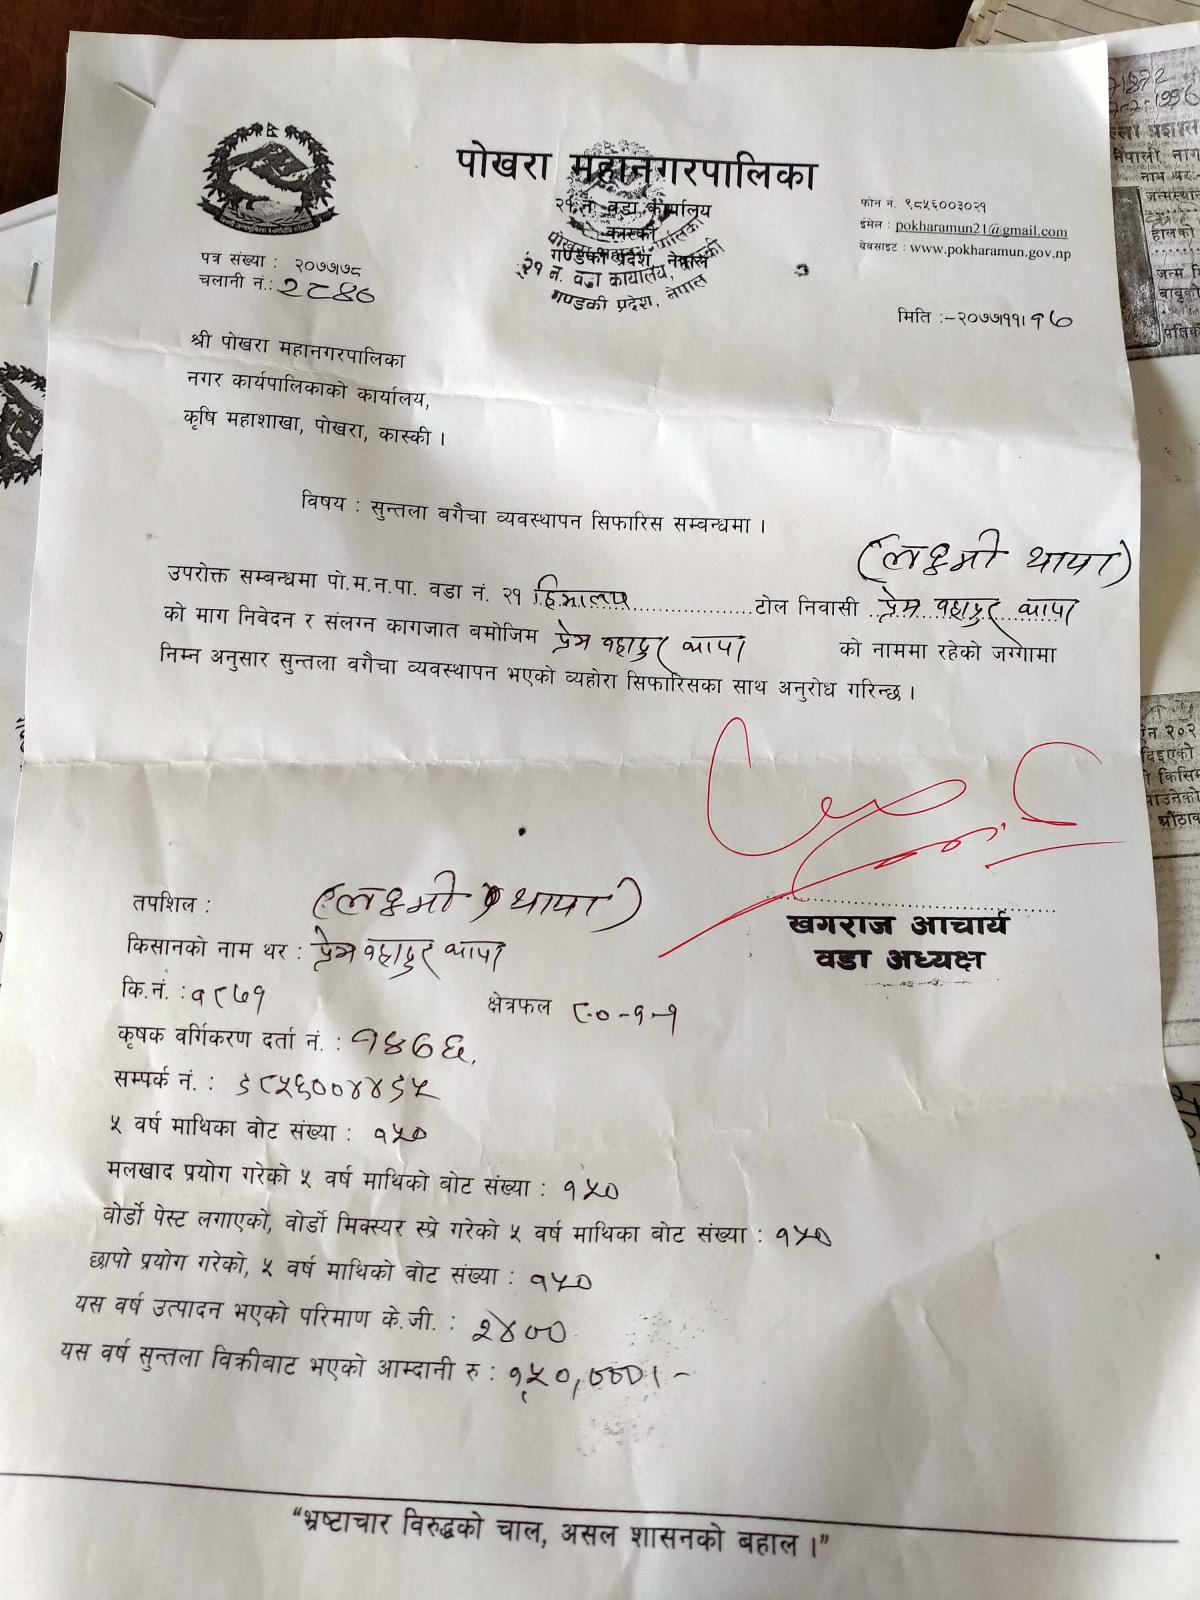 पोखरा महानगरपालिका
२१ न. वडा कार्यालय
कास्की
गण्डकी प्रदेश, नेपाल
२१ न. वडा कार्यालय, कास्की
गण्डकी प्रदेश, नेपाल
फोन नं. ९८५६००३०२१
इमेल : pokharamun21@gmail.com
वेवसाइट : www.pokharamun.gov.np
पत्र संख्या : २०७७/७८
चलानी नं.:
मिति :-२०७७।११।१७
श्री पोखरा महानगरपालिका
नगर कार्यपालिकाको कार्यालय,
कृषि महाशाखा, पोखरा, कास्की ।
विषय : सुन्तला बगैचा व्यवस्थापन सिफारिस सम्बन्धमा ।
(लक्ष्मी थापा)
उपरोक्त सम्बन्धमा पो.म.न.पा. वडा नं. २१ हिमालय टोल निवासी प्रेम बहादुर थापा
को माग निवेदन र संलग्न कागजात बमोजिम प्रेम बहादुर थापा को नाममा रहेको जग्गामा
निम्न अनुसार सुन्तला वगैचा व्यवस्थापन भएको व्यहोरा सिफारिसका साथ अनुरोध गरिन्छ ।
खगराज आचार्य
वडा अध्यक्ष
तपशिल : (लक्ष्मी थापा)
किसानको नाम थर : प्रेम बहादुर थापा
कि.नं. : १८७१ क्षेत्रफल ८-०-१-१
कृषक वर्गिकरण दर्ता नं. : १४७६
सम्पर्क नं. : ९८५६००४४९५
५ वर्ष माथिका वोट संख्या : १५०
मलखाद प्रयोग गरेको ५ वर्ष माथिको बोट संख्या : १५०
वोर्डो पेस्ट लगाएको, वोर्डो मिक्स्यर स्प्रे गरेको ५ वर्ष माथिका बोट संख्या : १५०
छापो प्रयोग गरेको, ५ वर्ष माथिको वोट संख्या : १५०
यस वर्ष उत्पादन भएको परिमाण के.जी. : २४००
यस वर्ष सुन्तला विक्रीबाट भएको आम्दानी रु : १५०,०००।-
“भ्रष्टाचार विरुद्धको चाल, असल शासनको बहाल ।”